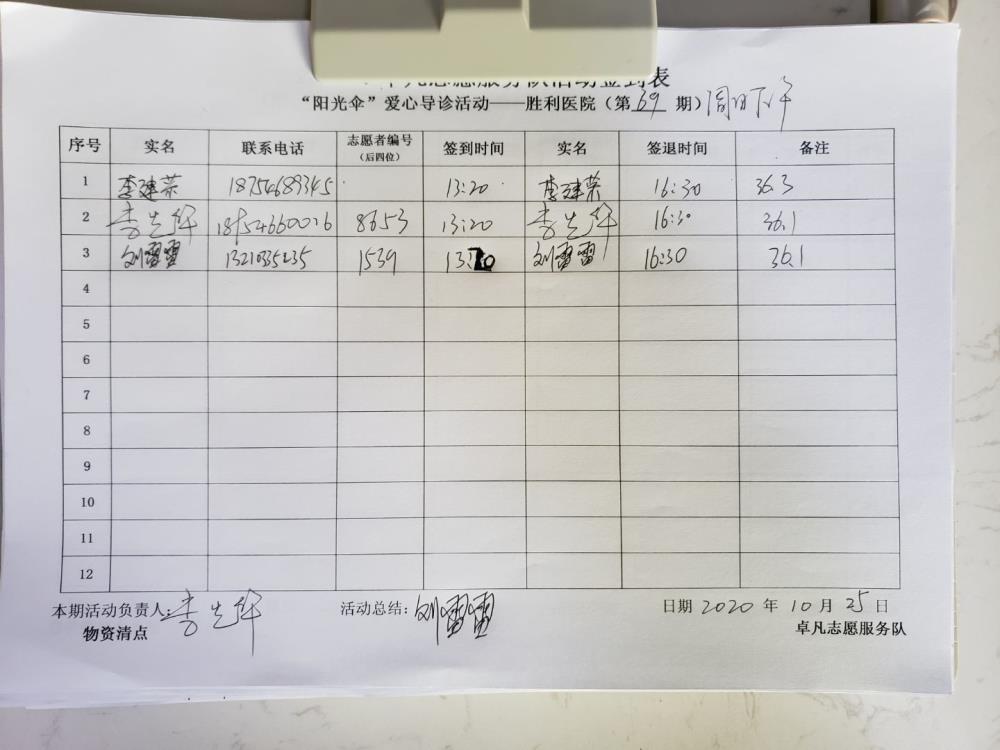 卓凡志愿服务队活动签到表
“阳光伞”爱心导诊活动——胜利医院（第39期）周日下午
序号 实名 联系电话 志愿者编号（后四位） 签到时间 实名 签退时间 备注
1 李建荣 18754689345 13:20 李建荣 16:30 36.3
2 李 18954660026 8653 13:20 李 16:30 36.1
3 刘雷雷 13210335235 1539 刘雷雷 16:30 36.1
4
5
6
7
8
9
10
11
12
本期活动负责人: 李 活动总结: 刘雷雷 日期 2020 年 10 月 25 日
物资清点 卓凡志愿服务队